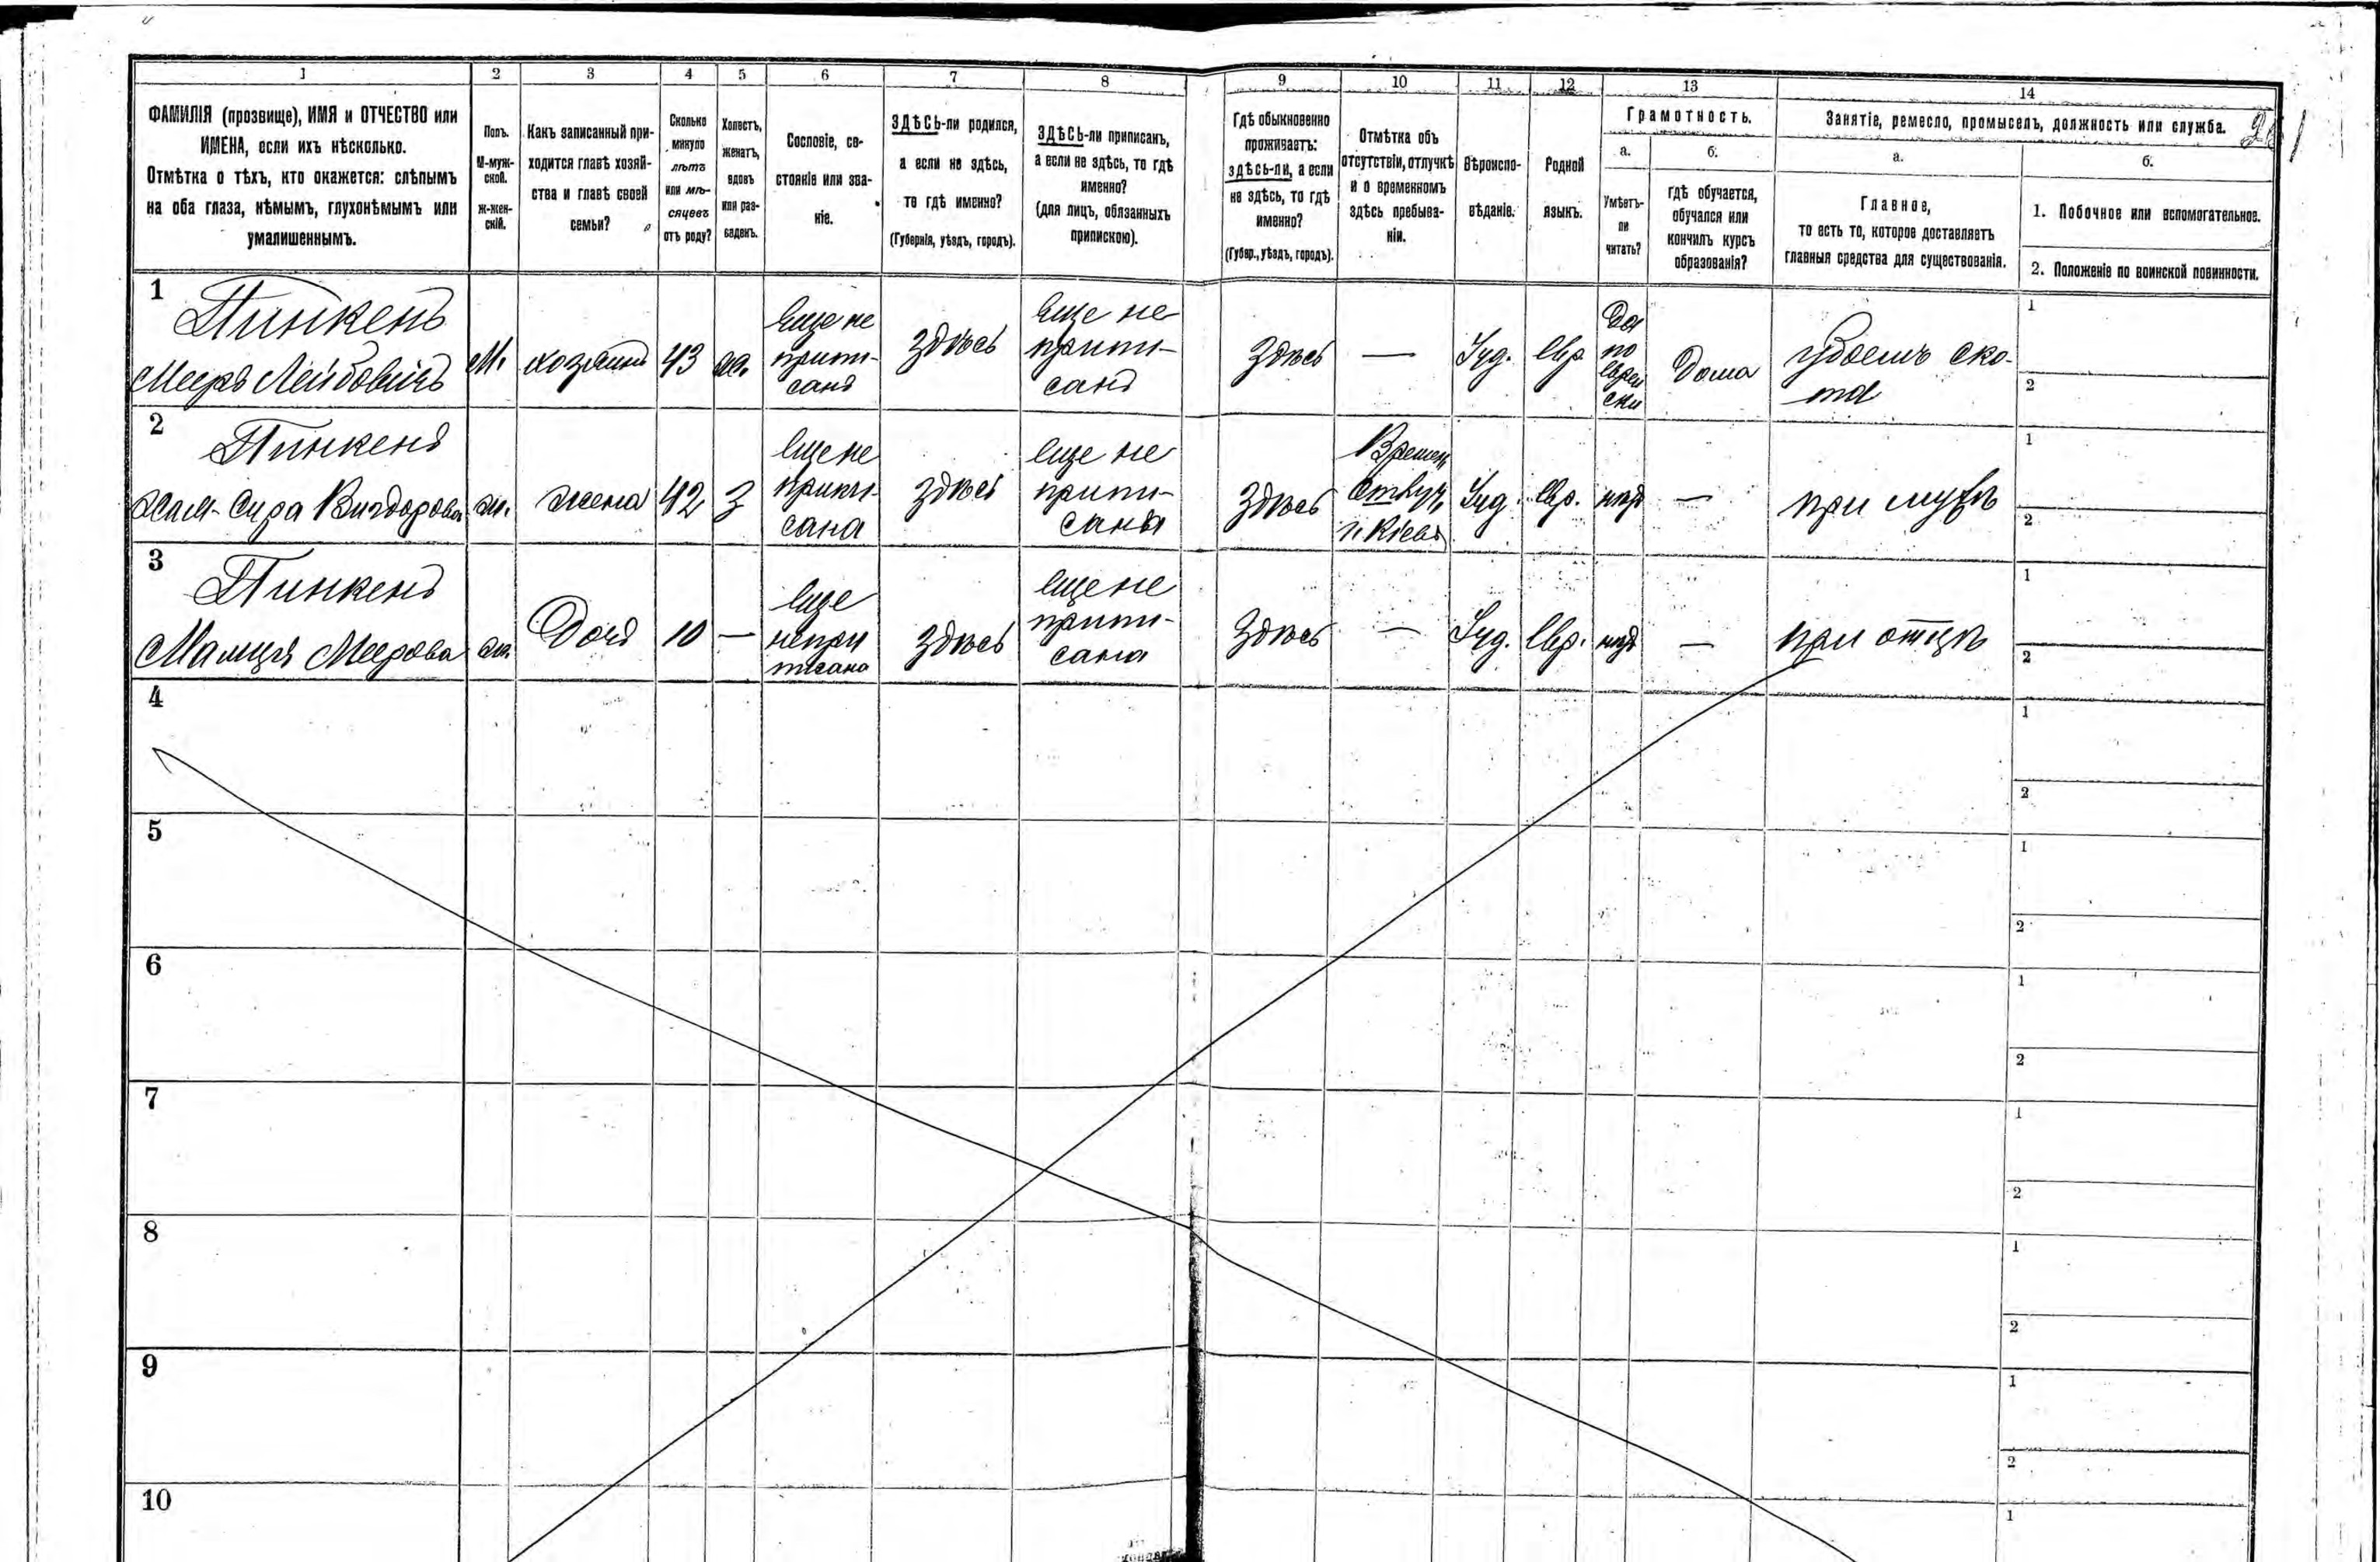 1
2
3
4
5
6
7
8
9
10
11
12
13
14
ФАМИЛІЯ (прозвище), ИМЯ и ОТЧЕСТВО или
ИМЕНА, если ихъ нѣсколько.
Отмѣтка о тѣхъ, кто окажется: слѣпымъ
на оба глаза, нѣмымъ, глухонѣмымъ или
умалишеннымъ.
Полъ.
М-муж-
ской.
ж-жен-
скій.
Какъ записанный при-
ходится главѣ хозяй-
ства и главѣ своей
семьи?
Сколько
минуло
лѣтъ
или мѣ-
сяцевъ
отъ роду?
Холостъ,
женатъ,
вдовъ
или раз-
веденъ.
Сословіе, со-
стояніе или зва-
ніе.
ЗДѢСЬ-ли родился,
а если не здѣсь,
то гдѣ именно?
(Губернія, уѣздъ, городъ).
ЗДѢСЬ-ли приписанъ,
а если не здѣсь, то гдѣ
именно?
(для лицъ, обязанныхъ
припискою).
Гдѣ обыкновенно
проживаетъ:
здѣсь-ли, а если
не здѣсь, то гдѣ
именно?
(Губер., уѣздъ, городъ).
Отмѣтка объ
отсутствіи, отлучкѣ
и о временномъ
здѣсь пребыва-
ніи.
Вѣроиспо-
вѣданіе.
Родной
языкъ.
Грамотность.
а.
Умѣетъ-
ли
читать?
б.
гдѣ обучается,
обучался или
кончилъ курсъ
образованія?
Занятіе, ремесло, промыселъ, должность или служба.
а.
Главное,
то есть то, которое доставляетъ
главныя средства для существованія.
б.
1. Побочное или вспомогательное.
2. Положеніе по воинской повинности.
1
Пинкенъ
Мееръ Лейбовичъ
М.
хозяинъ
43
ж.
Еще не
припи-
санъ
Здѣсь
Еще не
припи-
санъ
Здѣсь
—
Іуд.
Евр
Да
по
еврей
ски
Дома
убоемъ ско-
та
1
2
2
Пинкенъ
Хая-Сура Вигдорова
ж.
жена
42
З
Еще не
припи-
сана
Здѣсь
Еще не
припи-
сана
Здѣсь
Времен
Отлуч.
г. Кіевъ
Іуд.
Евр.
нѣтъ
—
при мужѣ
1
2
3
Пинкенъ
Меерова
ж.
Дочь
10
—
Еще
непри
писана
Здѣсь
Еще не
припи-
сана
Здѣсь
—
Іуд.
Евр.
нѣтъ
—
при отцѣ
1
2
4
1
2
5
1
2
6
1
2
7
1
2
8
1
2
9
1
2
10
1